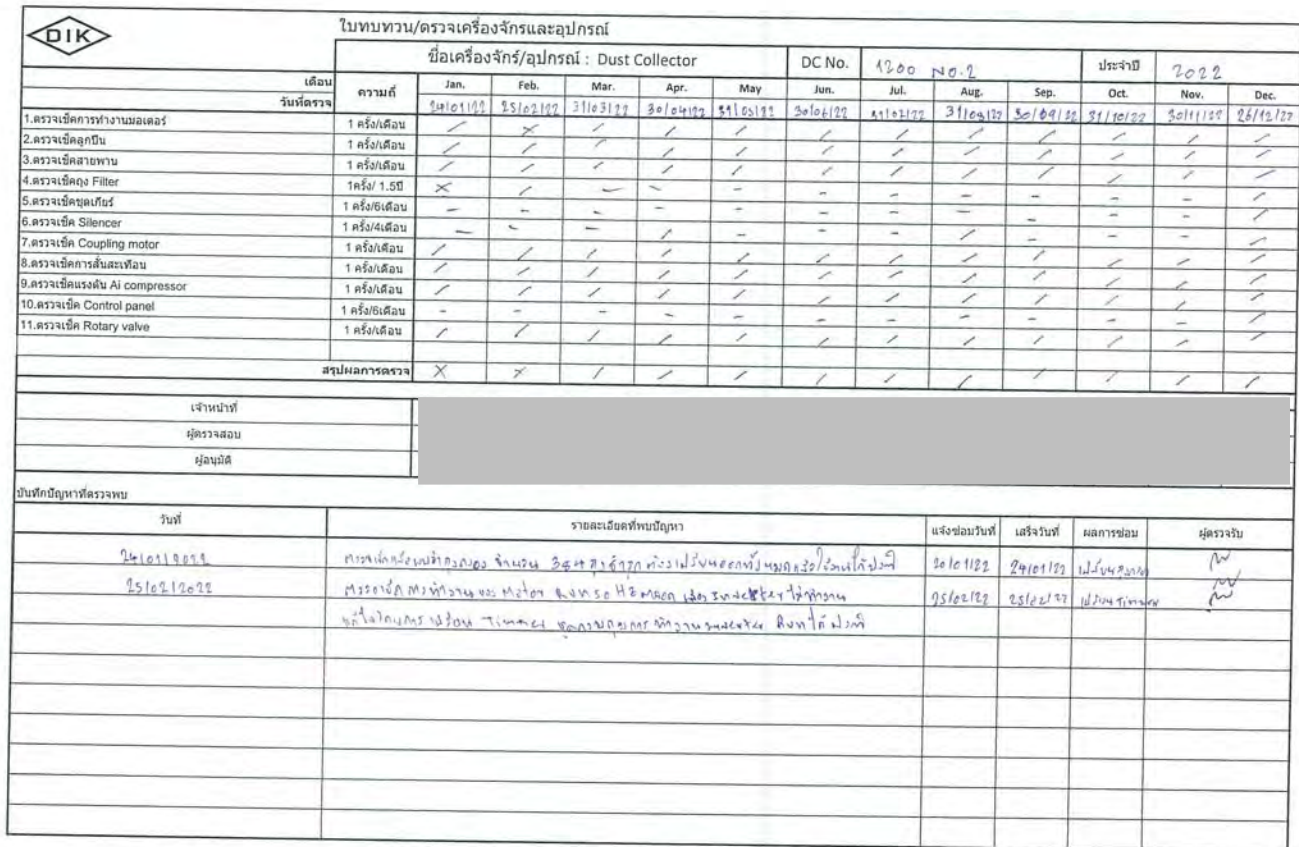 DIK
ใบทบทวน/ตรวจเครื่องจักรและอุปกรณ์
ชื่อเครื่องจักร์/อุปกรณ์ : Dust Collector DC No. 1200 NO.2 ประจำปี 2022
เดือน ความถี่ Jan. Feb. Mar. Apr. May Jun. Jul. Aug. Sep. Oct. Nov. Dec.
วันที่ตรวจ 24/01/22 25/02/22 31/03/22 30/04/22 31/05/22 30/06/22 31/07/22 31/08/22 30/09/22 31/10/22 30/11/22 26/12/22
1.ตรวจเช็คการทำงานมอเตอร์ 1 ครั้ง/เดือน / X / / / / / / / / / /
2.ตรวจเช็คลูกปืน 1 ครั้ง/เดือน / / / / / / / / / / / /
3.ตรวจเช็คสายพาน 1 ครั้ง/เดือน / / / / / / / / / / / /
4.ตรวจเช็คถุง Filter 1ครั้ง/ 1.5ปี X / - - - - - - - - - /
5.ตรวจเช็คชุดเกียร์ 1 ครั้ง/6เดือน - - - - - - - - - - - /
6.ตรวจเช็ค Silencer 1 ครั้ง/4เดือน - - - / - - - / - - - /
7.ตรวจเช็ค Coupling motor 1 ครั้ง/เดือน / / / / / / / / / / / /
8.ตรวจเช็คการสั่นสะเทือน 1 ครั้ง/เดือน / / / / / / / / / / / /
9.ตรวจเช็คแรงดัน Ai compressor 1 ครั้ง/เดือน / / / / / / / / / / / /
10.ตรวจเช็ค Control panel 1 ครั้ง/6เดือน - - - - - - - - - - - /
11.ตรวจเช็ค Rotary valve 1 ครั้ง/เดือน / / / / / / / / / / / /
สรุปผลการตรวจ X X / / / / / / / / / /
เจ้าหน้าที่
ผู้ตรวจสอบ
ผู้อนุมัติ
บันทึกปัญหาที่ตรวจพบ
วันที่ รายละเอียดที่พบปัญหา แจ้งซ่อมวันที่ เสร็จวันที่ ผลการซ่อม ผู้ตรวจรับ
24/01/2022 384 20/01/22 24/01/22
25/02/2022 ตรวจเช็ค การทำงานของ Motor 50 Hz 25/02/22 25/02/22 เปลี่ยน Timmer
Timmer